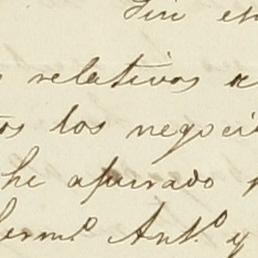 Sin en
relativos a
los negoci
he apurado
herm.º Ant.º y